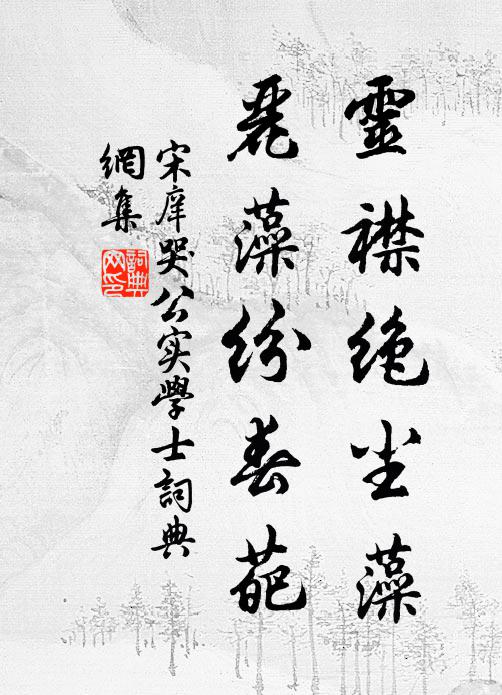 靈襟绝尘藻
丽藻纷春葩
宋庠哭公实學士詞典
網集
詞典
网印